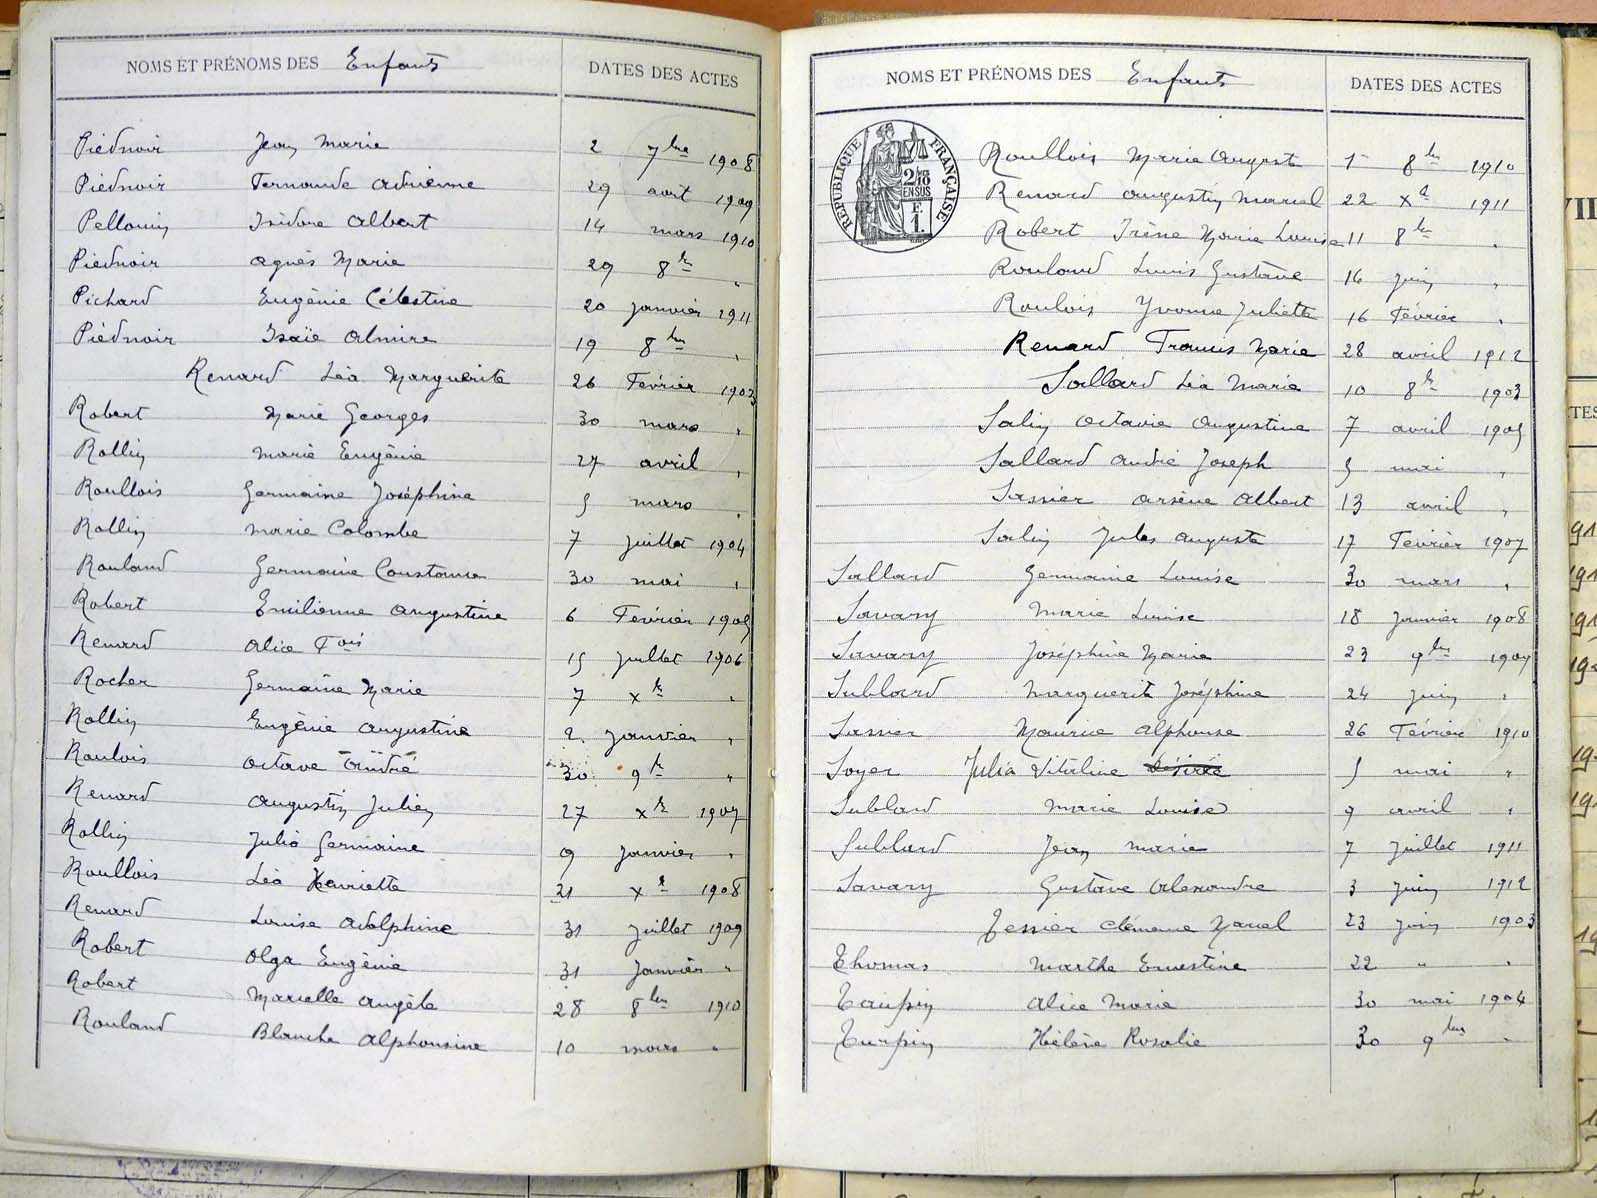 NOMS ET PRÉNOMS DES Enfants DATES DES ACTES
Piednoir Jean Marie 2 7bre 1908
Piednoir Fernande Adrienne 29 avril 1909
Pellouin Isidore Albert 14 mars 1910
Piednoir Agnès Marie 29 8bre "
Pichard Eugénie Célestine 20 janvier 1911
Piednoir Isaïe Almire 19 8bre "
Renard Léa Marguerite 26 Février 1903
Robert Marie Georges 30 mars "
Rollin Marie Eugénie 27 avril "
Roullois Germaine Joséphine 5 mars "
Rollin Marie Colombe 7 juillet 1904
Rouland Germaine Constance 30 mai "
Robert Emilienne Augustine 6 Février 1905
Renard Alice Foise 15 juillet 1906
Rocher Germaine Marie 7 Xbre "
Rollin Eugénie Augustine 2 janvier "
Roulois Octave André 30 9bre "
Renard Augustin Julien 27 Xbre 1907
Rollin Julia Germaine 9 janvier "
Roullois Léa Henriette 21 Xbre 1908
Renard Louise Adolphine 31 juillet 1909
Robert Olga Eugénie 31 janvier "
Robert Marcelle Angèle 28 8bre 1910
Rouland Blanche Alphonsine 10 mars "
NOMS ET PRÉNOMS DES Enfants DATES DES ACTES
RÉPUBLIQUE FRANÇAISE
2/10 EN SUS
F. 1.
Roullois Marie Auguste 1er 8bre 1910
Renard Augustin Marcel 22 Xbre 1911
Robert Irène Marie Louise 11 8bre "
Rouland Louis Gustave 16 juin "
Roulois Yvonne Juliette 16 Février "
Renard Francis Marie 28 avril 1912
Sallard Léa Marie 10 8bre 1903
Salin Octavie Augustine 7 avril 1905
Sallard André Joseph 5 mai "
Sasnier Arsène Albert 13 avril "
Salin Jules Auguste 17 Février 1907
Sallard Germaine Louise 30 mars "
Savary Marie Louise 18 janvier 1908
Savary Joséphine Marie 23 9bre 1909
Sublard Marguerite Joséphine 24 juin "
Sasnier Maurice Alphonse 26 Février 1910
Soyer Julia Vitaline Désirée 5 mai "
Sublard Marie Louise 9 avril "
Sublard Jean Marie 7 juillet 1911
Savary Gustave Alexandre 3 juin 1912
Tessier Clémence Marcel 23 juin 1903
Thomas Marthe Ernestine 22 " "
Taupin Alice Marie 30 mai 1904
Turpin Hélène Rosalie 30 9bre "